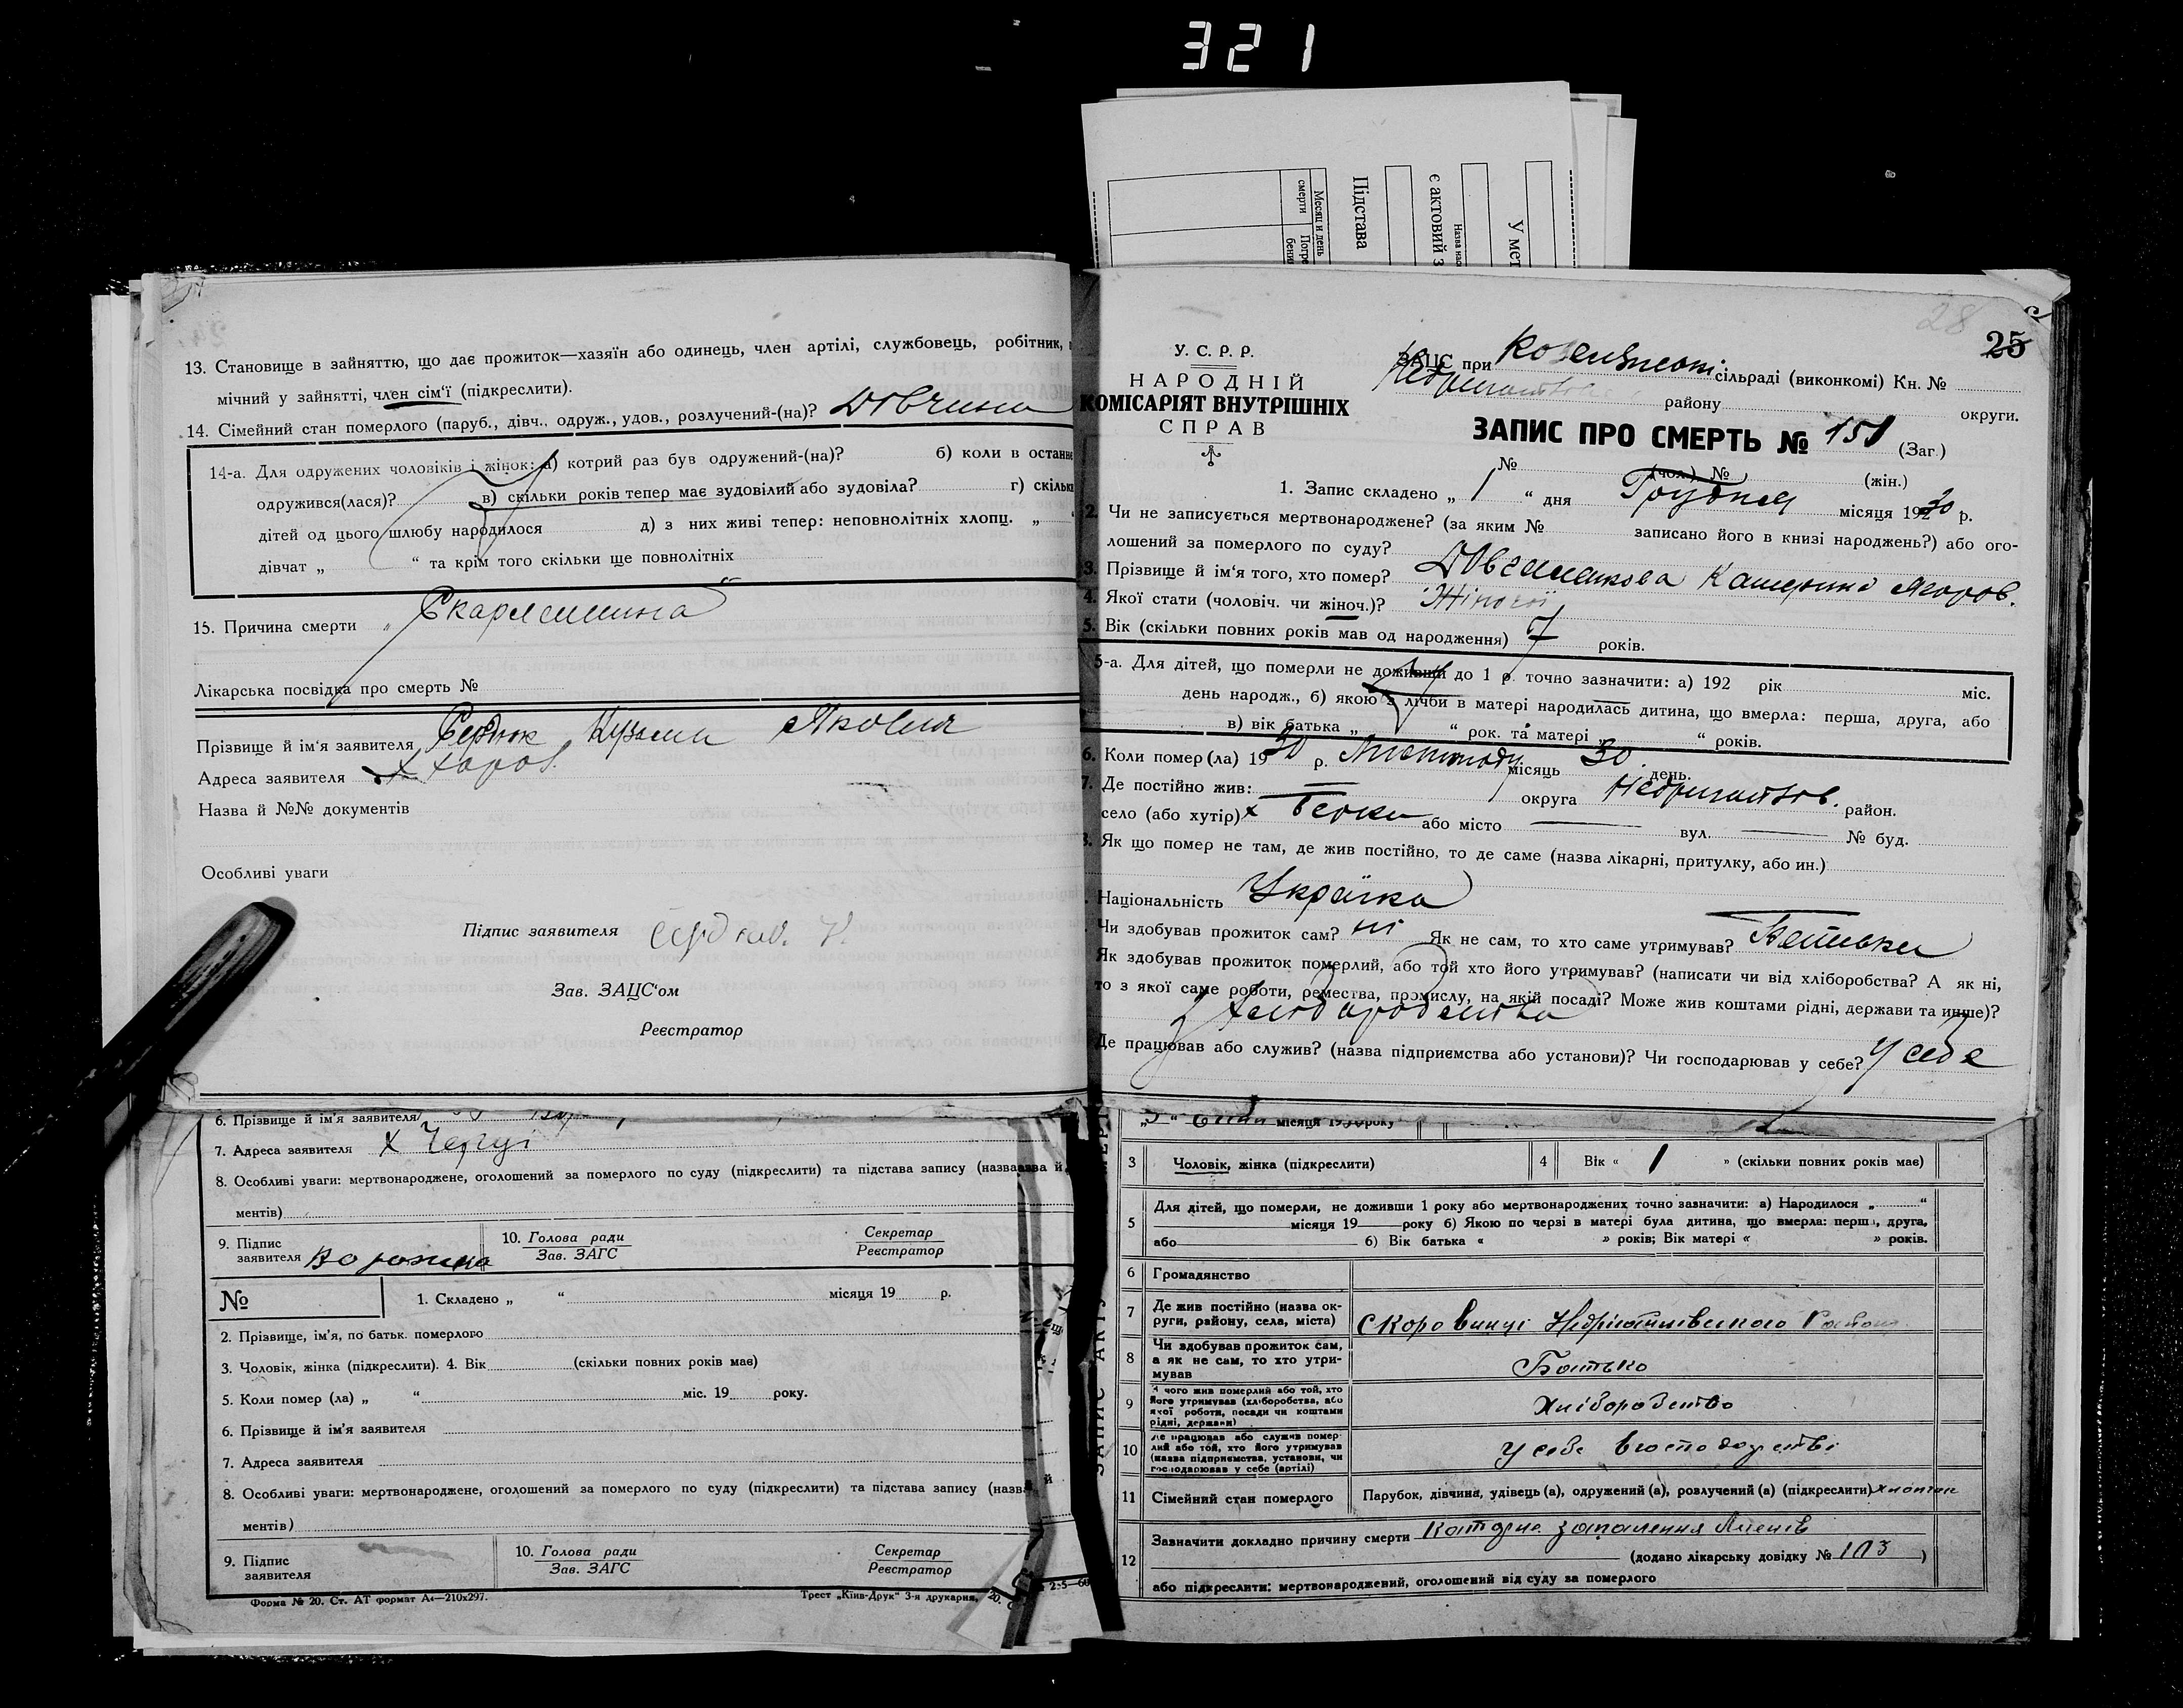 321
Місяць и день
смерти
Погре
бени
Підстава
є актовий з
Назва нас
У мет
13. Становище в зайняттю, що дає прожиток—хазяїн або одинець, член артілі, службовець, робітник,
мічний у зайнятті, член сім'ї (підкреслити).
14. Сімейний стан померлого (паруб., дівч., одруж., удов., розлучений-(на)? Дівчина
14-а. Для одружених чоловіків і жінок: а) котрий раз був одружений-(на)? б) коли в останнє
одружився(лася)? в) скільки років тепер має зудовілий або зудовіла? г) скільки
дітей од цього шлюбу народилося д) з них живі тепер: неповнолітніх хлопц. „ “
дівчат „ “ та крім того скільки ще повнолітніх
15. Причина смерти „Скарлатина“
Лікарська посвідка про смерть №
Прізвище й ім'я заявителя Сердюк Кузьма Якович
Адреса заявителя х
Назва й №№ документів
Особливі уваги
Підпис заявителя Сердюк К.
Зав. ЗАЦС'ом
Реєстратор
6. Прізвище й ім'я заявителя
7. Адреса заявителя х
8. Особливі уваги: мертвонароджене, оголошений за померлого по суду (підкреслити) та підстава запису (назва й
ментів)
9. Підпис
заявителя
10. Голова ради
Зав. ЗАГС
Секретар
Реєстратор
№
1. Складено „ “ місяця 19 р.
2. Прізвище, ім'я, по батьк. померлого
3. Чоловік, жінка (підкреслити). 4. Вік (скільки повних років має)
5. Коли помер (ла) „ “ міс. 19 року.
6. Прізвище й ім'я заявителя
7. Адреса заявителя
8. Особливі уваги: мертвонароджене, оголошений за померлого по суду (підкреслити) та підстава запису (назва й
ментів)
9. Підпис
заявителя
10. Голова ради
Зав. ЗАГС
Секретар
Реєстратор
Форма № 20. Ст. АТ формат А4—210х297.
Трест „Київ-Друк“ 3-я друкарня,
28
25
У. С. Р. Р.
НАРОДНІЙ
КОМІСАРІЯТ ВНУТРІШНІХ
СПРАВ
ЗАЦС при сільраді (виконкомі) Кн. №
району округи.
ЗАПИС ПРО СМЕРТЬ № 151 (Заг.)
№ (чол.) № (жін.)
1. Запис складено „ 1 “ дня Грудня місяця 1930 р.
2. Чи не записується мертвонароджене? (за яким № записано його в книзі народжень?) або ого-
лошений за померлого по суду?
3. Прізвище й ім'я того, хто помер? Катерина
4. Якої стати (чоловіч. чи жіноч.)? Жіночої
5. Вік (скільки повних років мав од народження) 7 років.
5-а. Для дітей, що померли не доживши до 1 р. точно зазначити: а) 192 рік міс.
день народж., б) якою з лічби в матері народилась дитина, що вмерла: перша, друга, або
в) вік батька „ “ рок. та матері „ “ років.
6. Коли помер (ла) 1930 р. Листопаду місяць 30 день.
7. Де постійно жив: округа Недригайлів. район.
село (або хутір) х Беєви або місто вул. № буд.
8. Як що помер не там, де жив постійно, то де саме (назва лікарні, притулку, або ин.)
Національність Українка
Чи здобував прожиток сам? ні Як не сам, то хто саме утримував? Батьки
Як здобував прожиток померлий, або той хто його утримував? (написати чи від хліборобства? А як ні,
то з якої саме роботи, ремества, промислу, на якій посаді? Може жив коштами рідні, держави та инше)?
з хліборобства
Де працював або служив? (назва підприємства або установи)? Чи господарював у себе? У себе
місяця 1930 року
ЗАПИС АКТУ
3 Чоловік, жінка (підкреслити)
4 Вік « 1 » (скільки повних років має)
5 Для дітей, що померли, не доживши 1 року або мертвонароджених точно зазначити: а) Народилося „ “
місяця 19 року б) Якою по черзі в матері була дитина, що вмерла: перша, друга,
або б) Вік батька « » років; Вік матері « » років.
6 Громадянство
7 Де жив постійно (назва ок-
руги, району, села, міста)
с Коровинці Недригайлівського Району
8 Чи здобував прожиток сам,
а як не сам, то хто утри-
мував
Батько
9 З чого жив померлий або той, хто
його утримував (хліборобства, або
якої роботи, посади чи коштами
рідні, держави)
Хліборобство
10 Де працював або служив помер-
лий або той, хто його утримував
(назва підприємства, установи, чи
господарював у себе (артілі)
У себе в господарстві
11 Сімейний стан померлого
Парубок, дівчина, удівець (а), одружений (а), розлучений (а) (підкреслити) хлопчик
12 Зазначити докладно причину смерти запалення легенів
(додано лікарську довідку № 103 )
або підкреслити: мертвонароджений, оголошений від суду за померлого